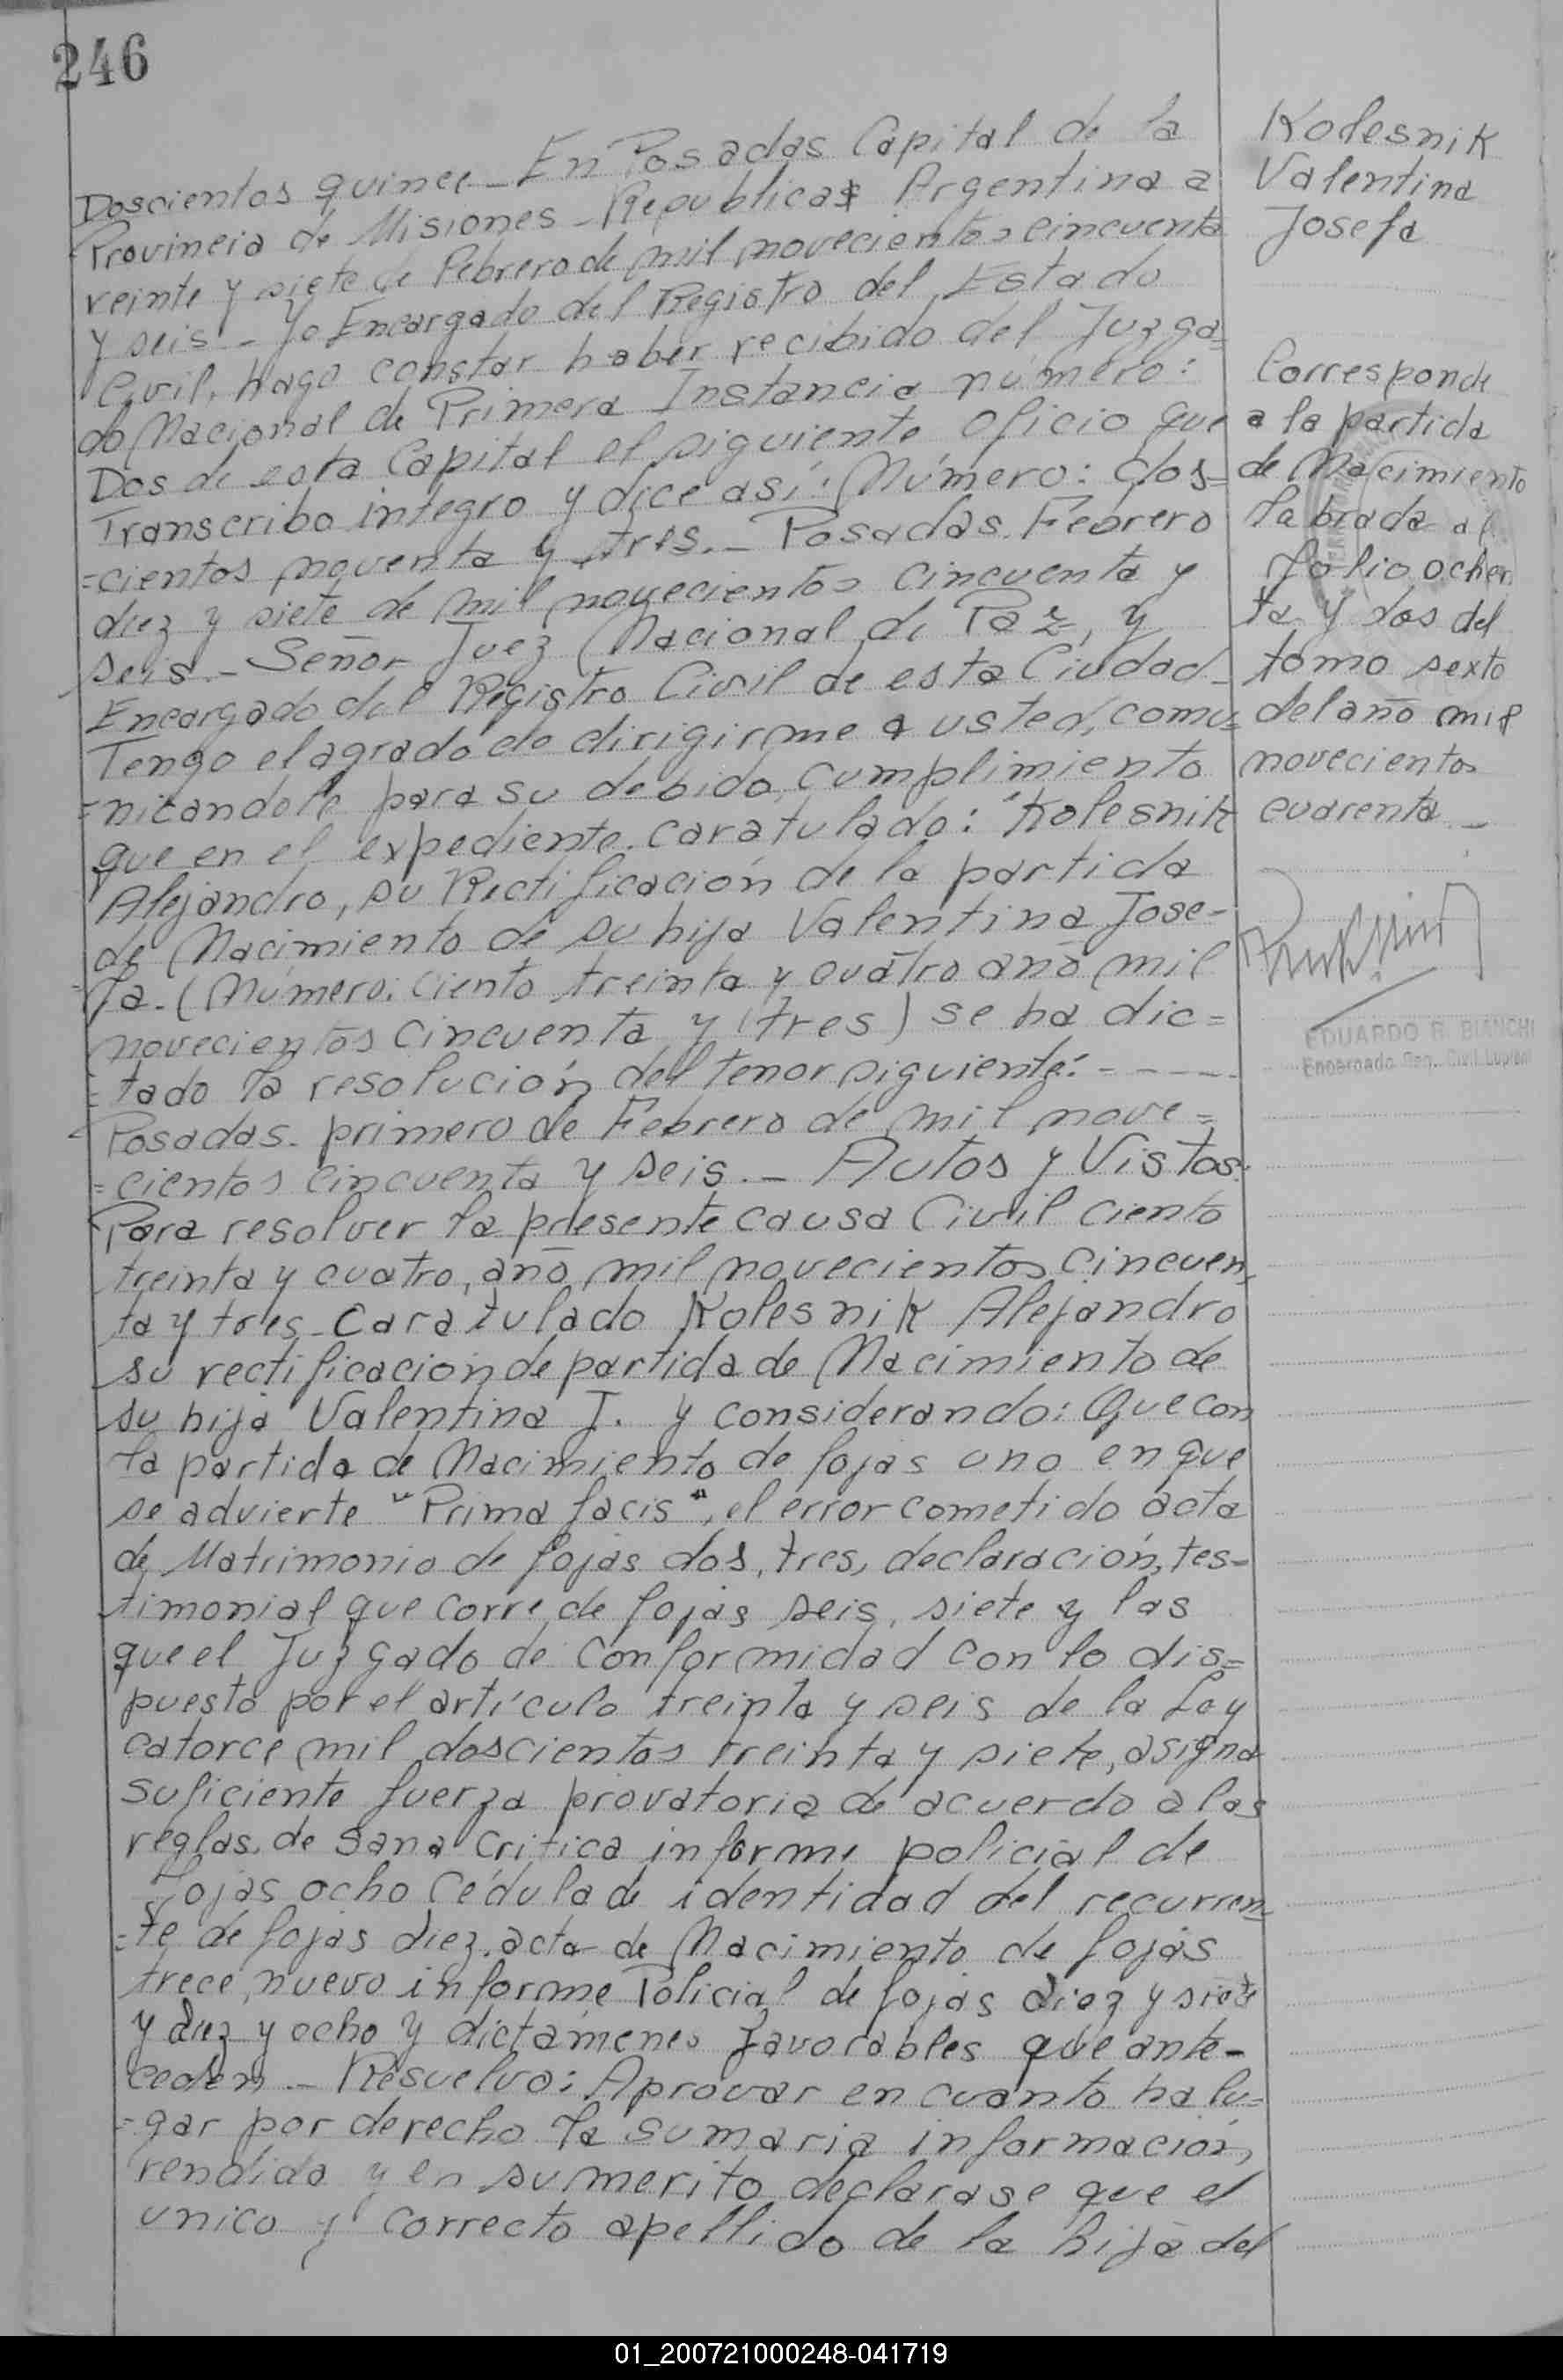 246
Doscientos quince - En Posadas Capital de la
Provincia de Misiones - Republica Argentina a
veinte y siete de Febrero de mil novecientos cincuenta
y seis - Yo Encargado del Registro del Estado
Civil, hago constar haber recibido del Juzga=
do Nacional de Primera Instancia número:
Dos de esta Capital el siguiente oficio que
Transcribo integro y dice así: Número: dos=
=cientos noventa y tres.- Posadas. Febrero
diez y siete de mil novecientos cincuenta y
seis.- Señor Juez Nacional de Paz, y
Encargado del Registro Civil de esta Ciudad-
Tengo el agrado de dirigirme a usted, comu=
=nicandole para su debido cumplimiento
que en el expediente caratulado: "Kolesnik
Alejandro, su Rectificación de la partida
de Nacimiento de su hija Valentina Jose-
=fa.- (Número: Ciento treinta y cuatro año mil
novecientos cincuenta y tres) se ha dic=
=tado la resolución del tenor siguiente: - - - - -
Posadas. primero de Febrero de mil nove=
=cientos cincuenta y seis.- Autos y Vistos:
Para resolver la presente causa Civil ciento
treinta y cuatro, año mil novecientos cincuen
ta y tres - Caratulado Kolesnik Alejandro
su rectificación de partida de Nacimiento de
su hija Valentina J. y considerando: Que con
la partida de Nacimiento de fojas uno en que
se advierte "Prima facis", el error cometido acta
de Matrimonio de fojas dos, tres, declaración, tes-
timonial que corre de fojas seis, siete y las
que el Juzgado de conformidad con lo dis=
puesto por el artículo treinta y seis de la Ley
catorce mil doscientos treinta y siete, asigna
suficiente fuerza provatoria de acuerdo a las
reglas de sana critica informe policial de
fojas ocho Cédula de identidad del recurren=
=te de fojas diez, acta de Nacimiento de fojas
trece, nuevo informe Policial de fojas diez y siete
y diez y ocho y dictámenes favorables que ante-
ceden - Resuelvo: Aprovar en cuanto ha lu=
=gar por derecho la sumaria información,
rendida y en su merito declarase que el
unico y correcto apellido de la hija del
Kolesnik
Valentina
Josefa
Corresponde
a la partida
de Nacimiento
labrada al
folio ochen
ta y dos del
tomo sexto
del año mil
novecientos
cuarenta -
EDUARDO R. BIANCHI
Encargado Reg. Civil
01_200721000248-041719